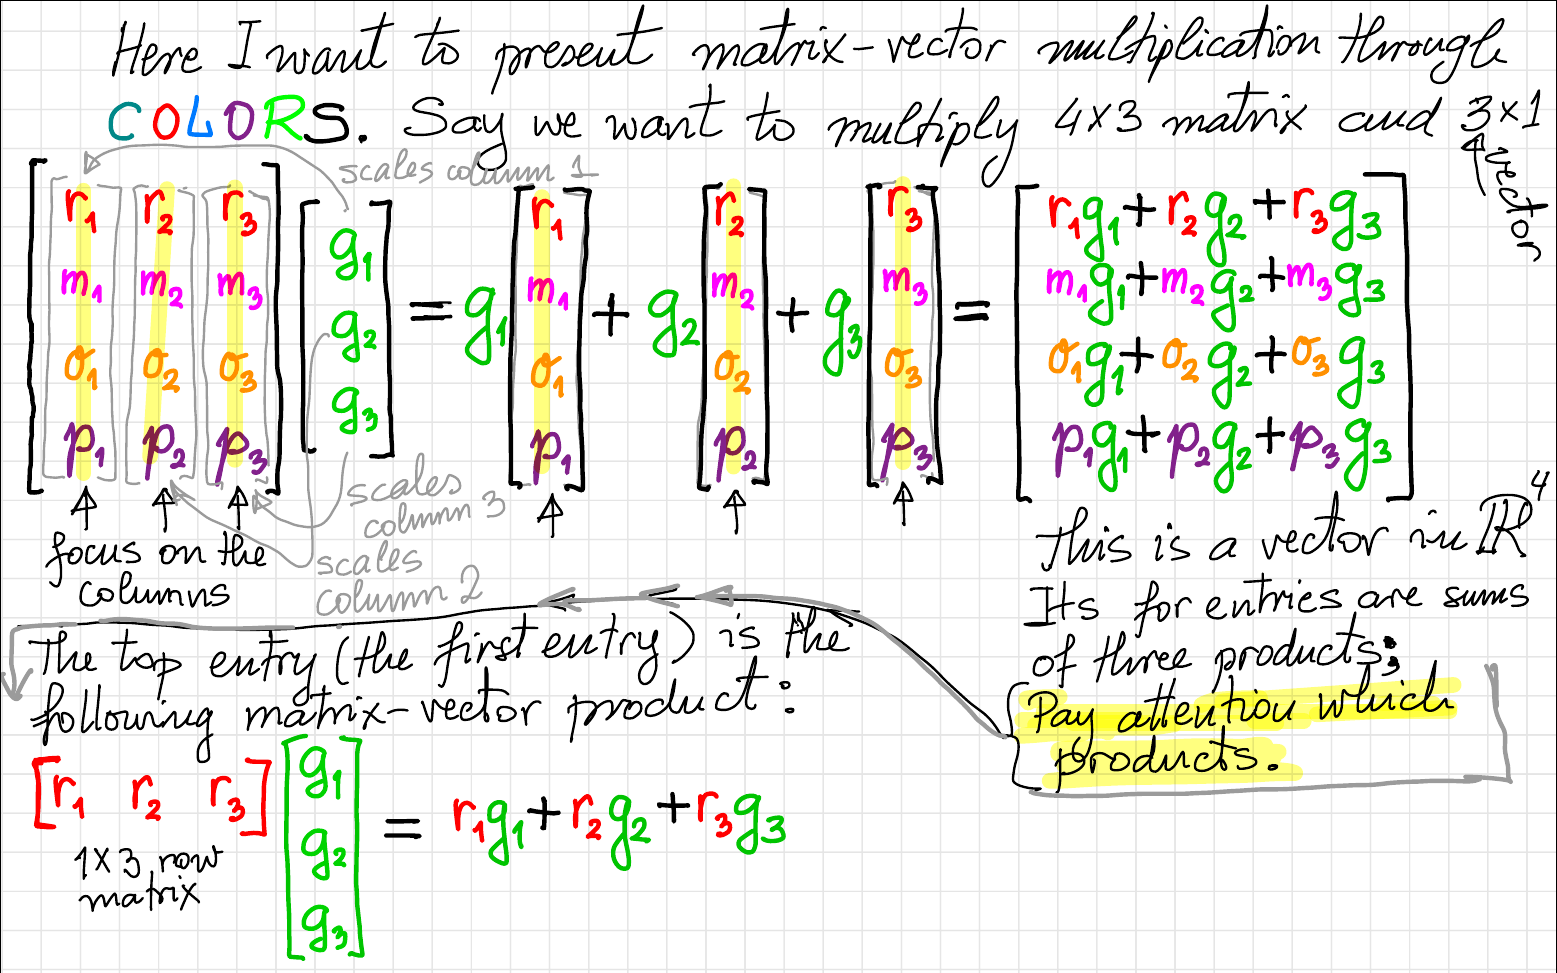 Here I want to present matrix-vector multiplication through
COLORS. Say we want to multiply 4×3 matrix and 3×1
vector
scales column 1
[r₁ r₂ r₃] [g₁] = g₁[r₁] + g₂[r₂] + g₃[r₃] = [r₁g₁+r₂g₂+r₃g₃]
[m₁ m₂ m₃] [g₂] [m₁] [m₂] [m₃] [m₁g₁+m₂g₂+m₃g₃]
[σ₁ σ₂ σ₃] [g₃] [σ₁] [σ₂] [σ₃] [σ₁g₁+σ₂g₂+σ₃g₃]
[p₁ p₂ p₃] [p₁] [p₂] [p₃] [p₁g₁+p₂g₂+p₃g₃]
scales
column 3
focus on the
columns
scales
column 2
This is a vector in ℝ⁴
Its for entries are sums
of three products;
Pay attention which
products.
The top entry (the first entry) is the
following matrix-vector product:
[r₁ r₂ r₃] [g₁ g₂ g₃] = r₁g₁+r₂g₂+r₃g₃
1×3 row
matrix